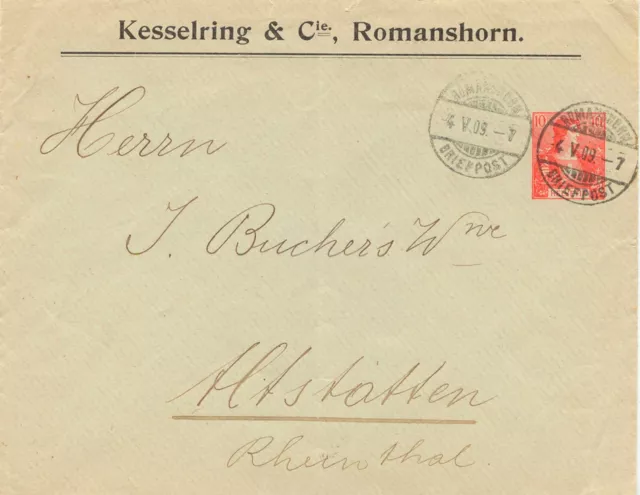 Kesselring & Cie., Romanshorn.
ROMANSHORN
4. V. 09. – 7
BRIEFPOST
10
ROMANSHORN
4. V. 09. – 7
BRIEFPOST
Herrn
J. Bucher's Wwe
Altstätten
Rheinthal.